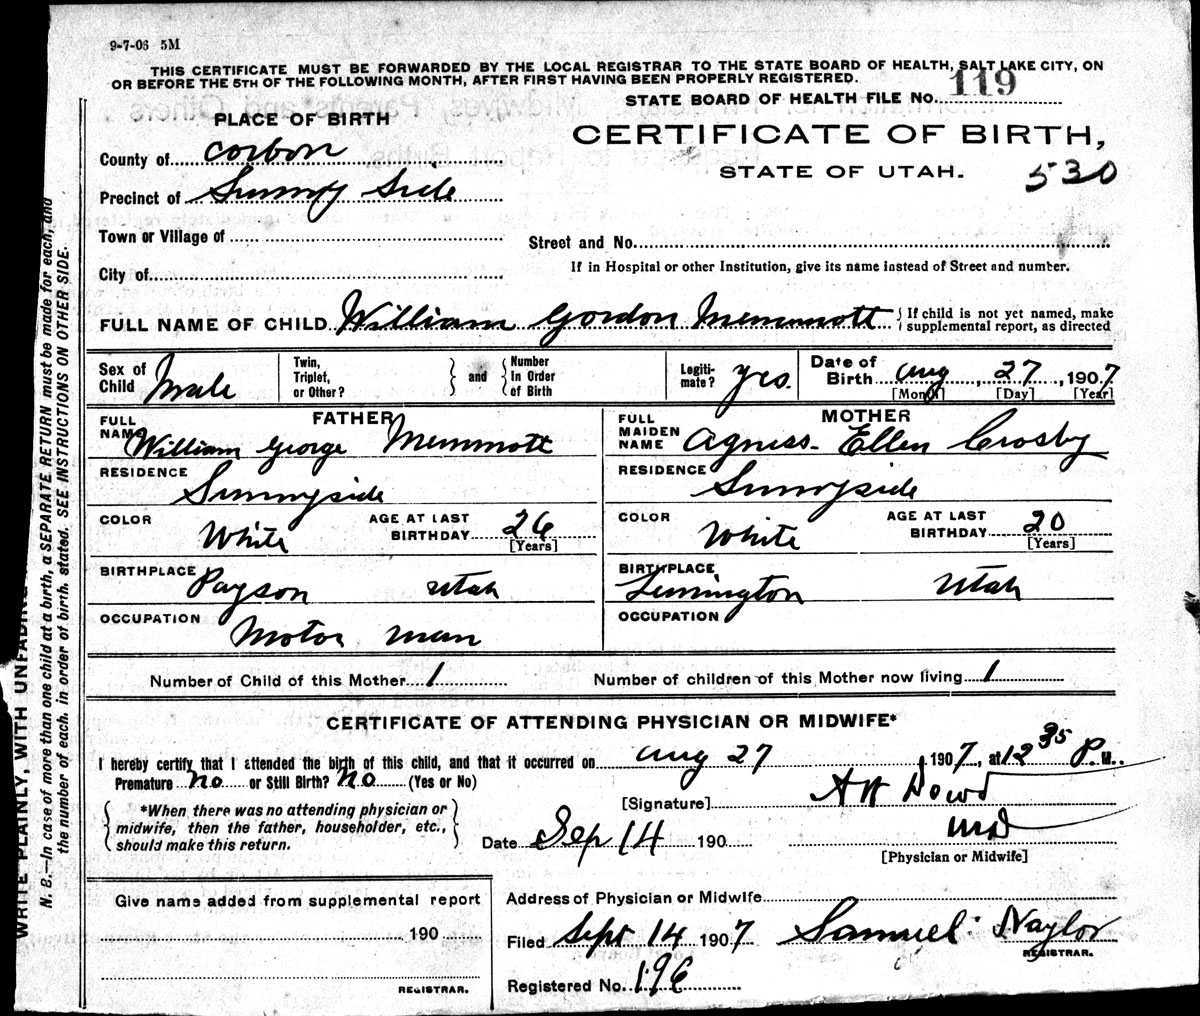 9-7-06 5M
THIS CERTIFICATE MUST BE FORWARDED BY THE LOCAL REGISTRAR TO THE STATE BOARD OF HEALTH, SALT LAKE CITY, ON
OR BEFORE THE 5TH OF THE FOLLOWING MONTH, AFTER FIRST HAVING BEEN PROPERLY REGISTERED.
STATE BOARD OF HEALTH FILE No. 119
PLACE OF BIRTH
CERTIFICATE OF BIRTH,
STATE OF UTAH.
530
County of Corbon
Precinct of Sunny Side
Town or Village of
Street and No.
City of
If in Hospital or other Institution, give its name instead of Street and number.
FULL NAME OF CHILD William Gordon Memmott { If child is not yet named, make
supplemental report, as directed
Sex of Child Male
Twin, Triplet, or Other? } and { Number In Order of Birth
Legiti-mate? yes.
Date of Birth Aug, 27, 1907
[Month] [Day] [Year]
FATHER
FULL NAME William George Memmott
MOTHER
FULL MAIDEN NAME Agness Ellen Crosby
RESIDENCE Sunnyside
RESIDENCE Sunnyside
COLOR White AGE AT LAST BIRTHDAY 26 [Years]
COLOR White AGE AT LAST BIRTHDAY 20 [Years]
BIRTHPLACE Payson Utah
BIRTHPLACE Lemington Utah
OCCUPATION Motor man
OCCUPATION
Number of Child of this Mother 1
Number of children of this Mother now living 1
CERTIFICATE OF ATTENDING PHYSICIAN OR MIDWIFE*
I hereby certify that I attended the birth of this child, and that it occurred on Aug 27, 1907, at 12 35 P.M.
Premature No or Still Birth? No (Yes or No)
{ *When there was no attending physician or
midwife, then the father, householder, etc.,
should make this return. }
[Signature] Dowd
MD
Date Sep 14 190
[Physician or Midwife]
Give name added from supplemental report
190
REGISTRAR.
Address of Physician or Midwife
Filed Sept 14 1907 Samuel Naylor
REGISTRAR.
Registered No. 196
WRITE PLAINLY, WITH UNFADING
N. B.—In case of more than one child at a birth, a SEPARATE RETURN must be made for each, and
the number of each, in order of birth, stated. SEE INSTRUCTIONS ON OTHER SIDE.